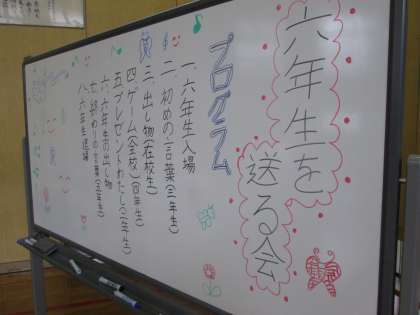 六年生を
送る会
プログラム
一、六年生入場
二、初めの言葉(三年生)
三、出し物(在校生)
四、ゲーム(全校)(四年生)
五、プレゼントわたし(二年生)
六、六年生お出し物
七、終わりの言葉(五年生)
八、六年生退場